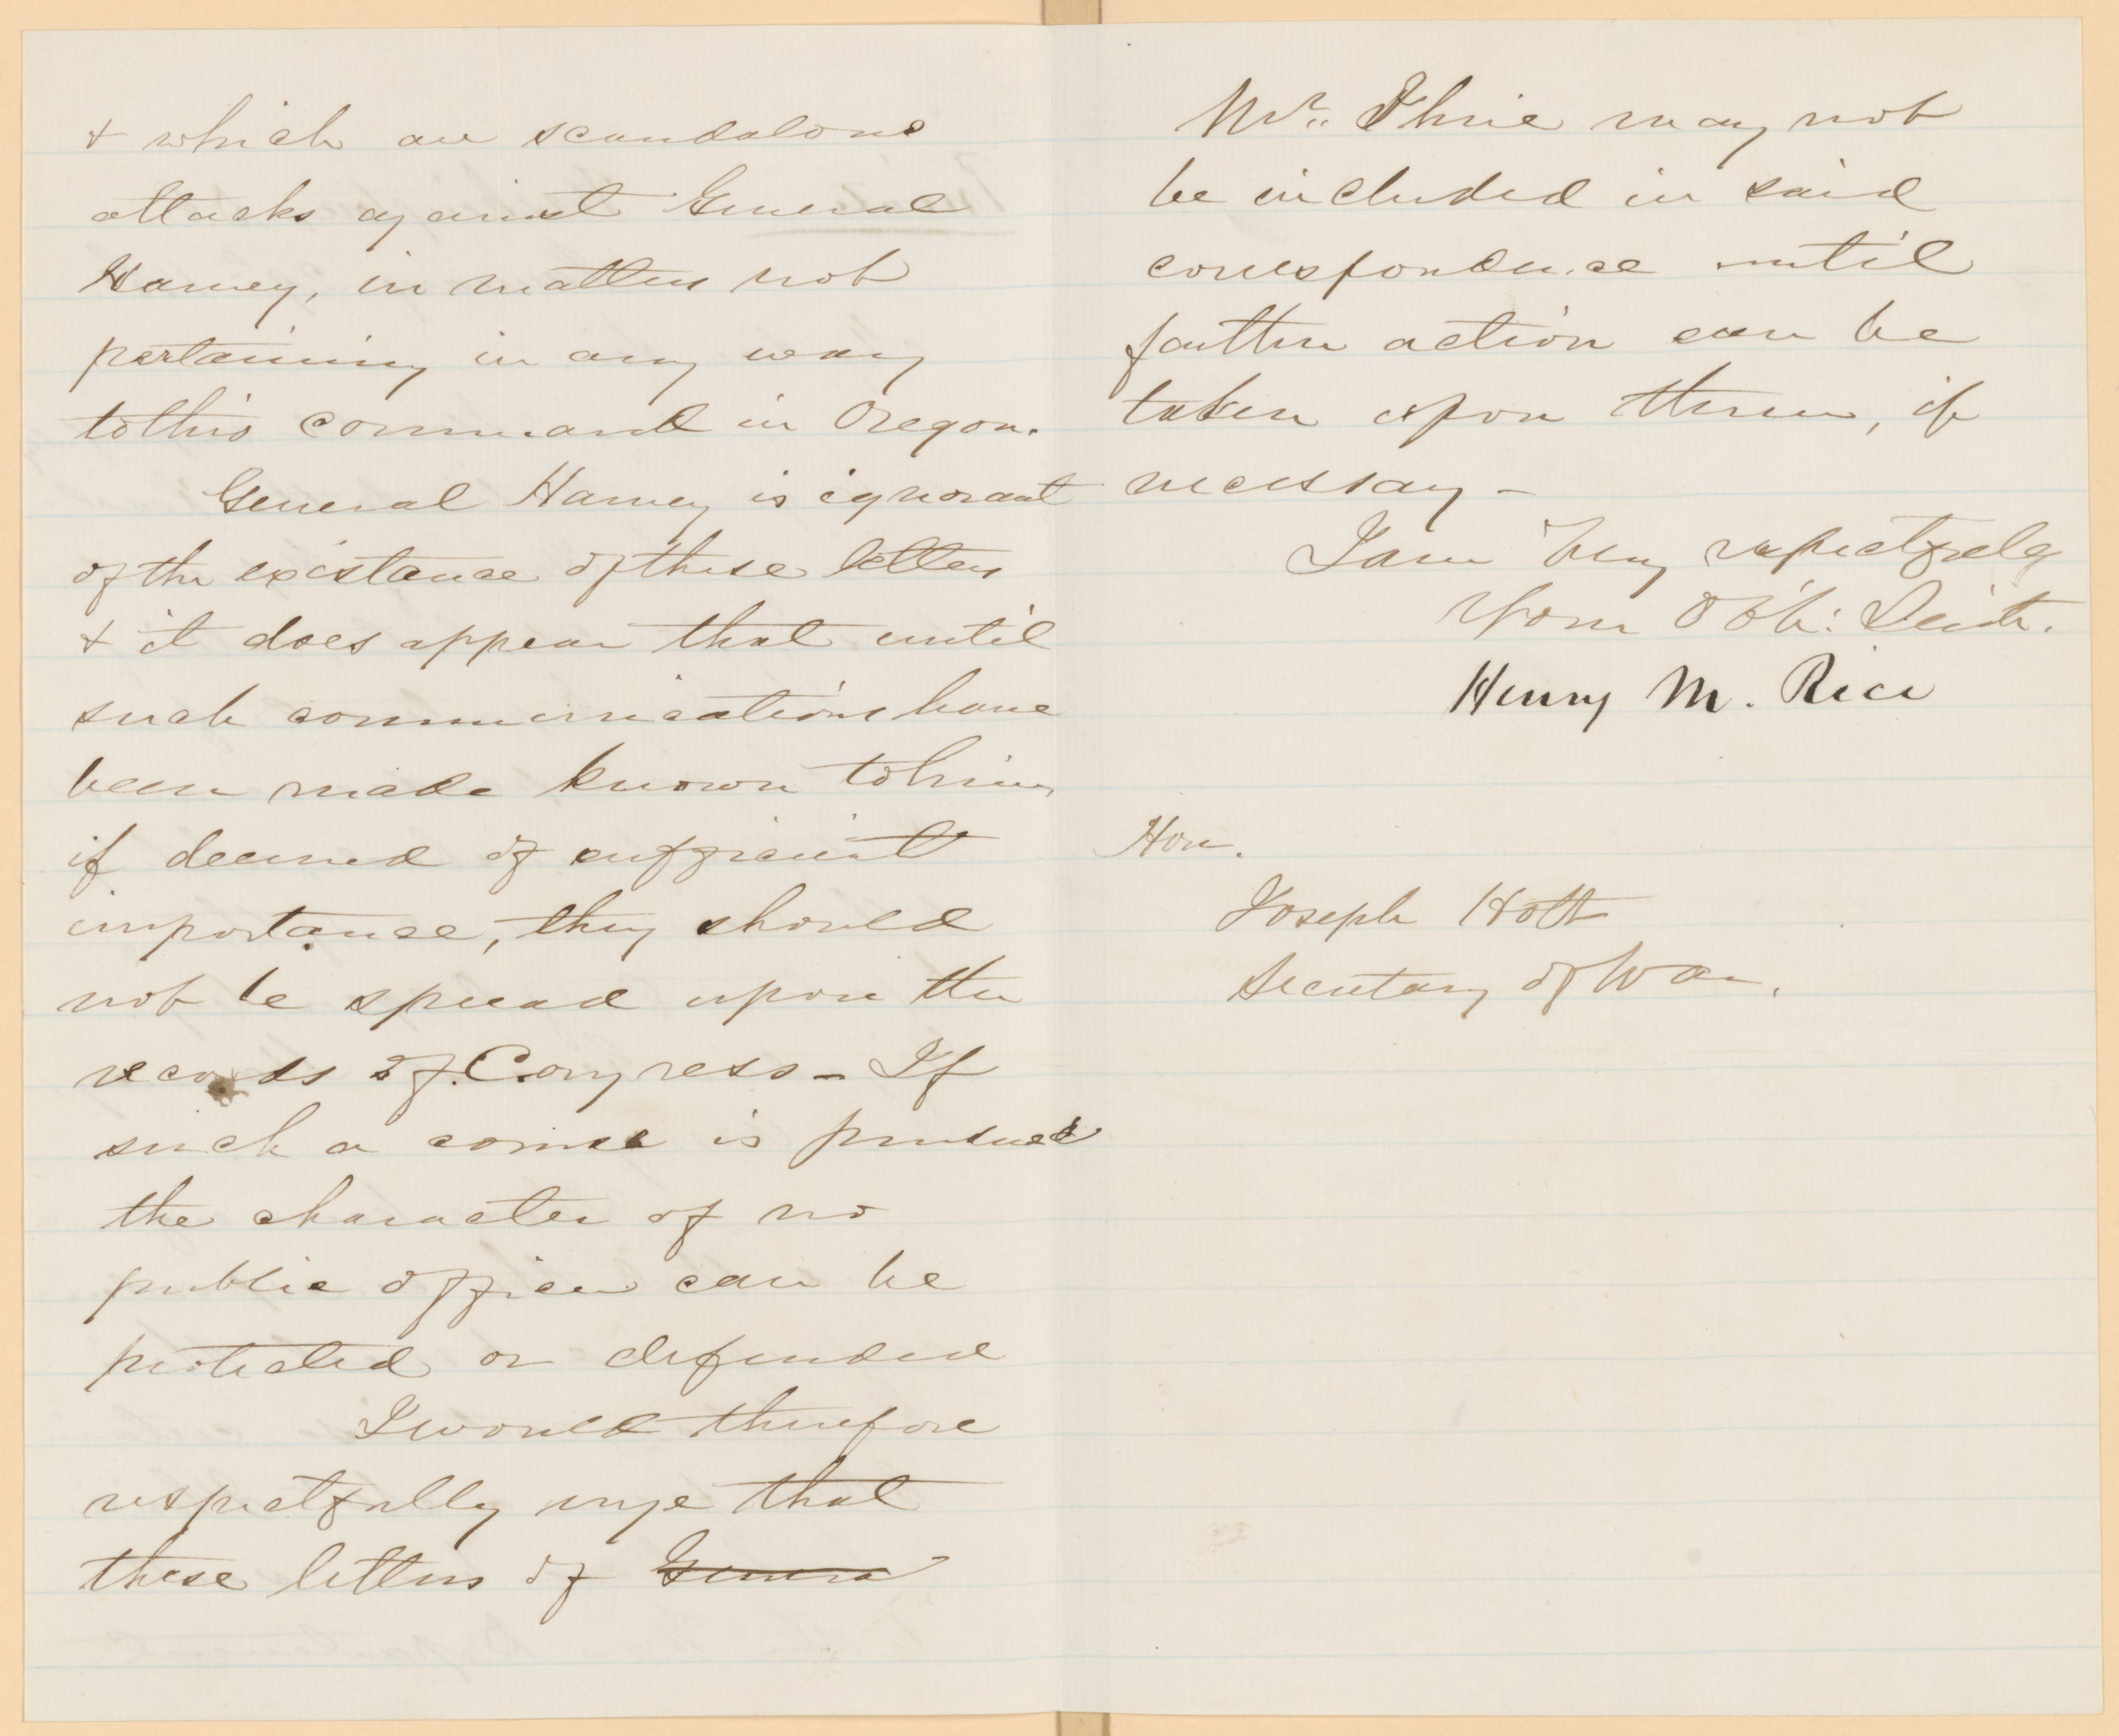 & which are scandalous
attacks against General
Harney, in matters not
pertaining in any way
to this command in Oregon.
General Harney is ignorant
of the existance of these letters
& it does appear that until
such communications have
been made known to him,
if deemed of sufficient
importance, they should
not be spread upon the
records of Congress - If
such a course is pursued
the character of no
public officer can be
protected or defended
I would therefore
respectfully urge that
these letters of Genera
Mr. Thrie may not
be included in said
correspondence until
further action can be
taken upon them, if
necessary -
I am Very respectfully
Your Obt: Servt.
Henry M. Rice
Hon.
Joseph Holt
Secretary of War.